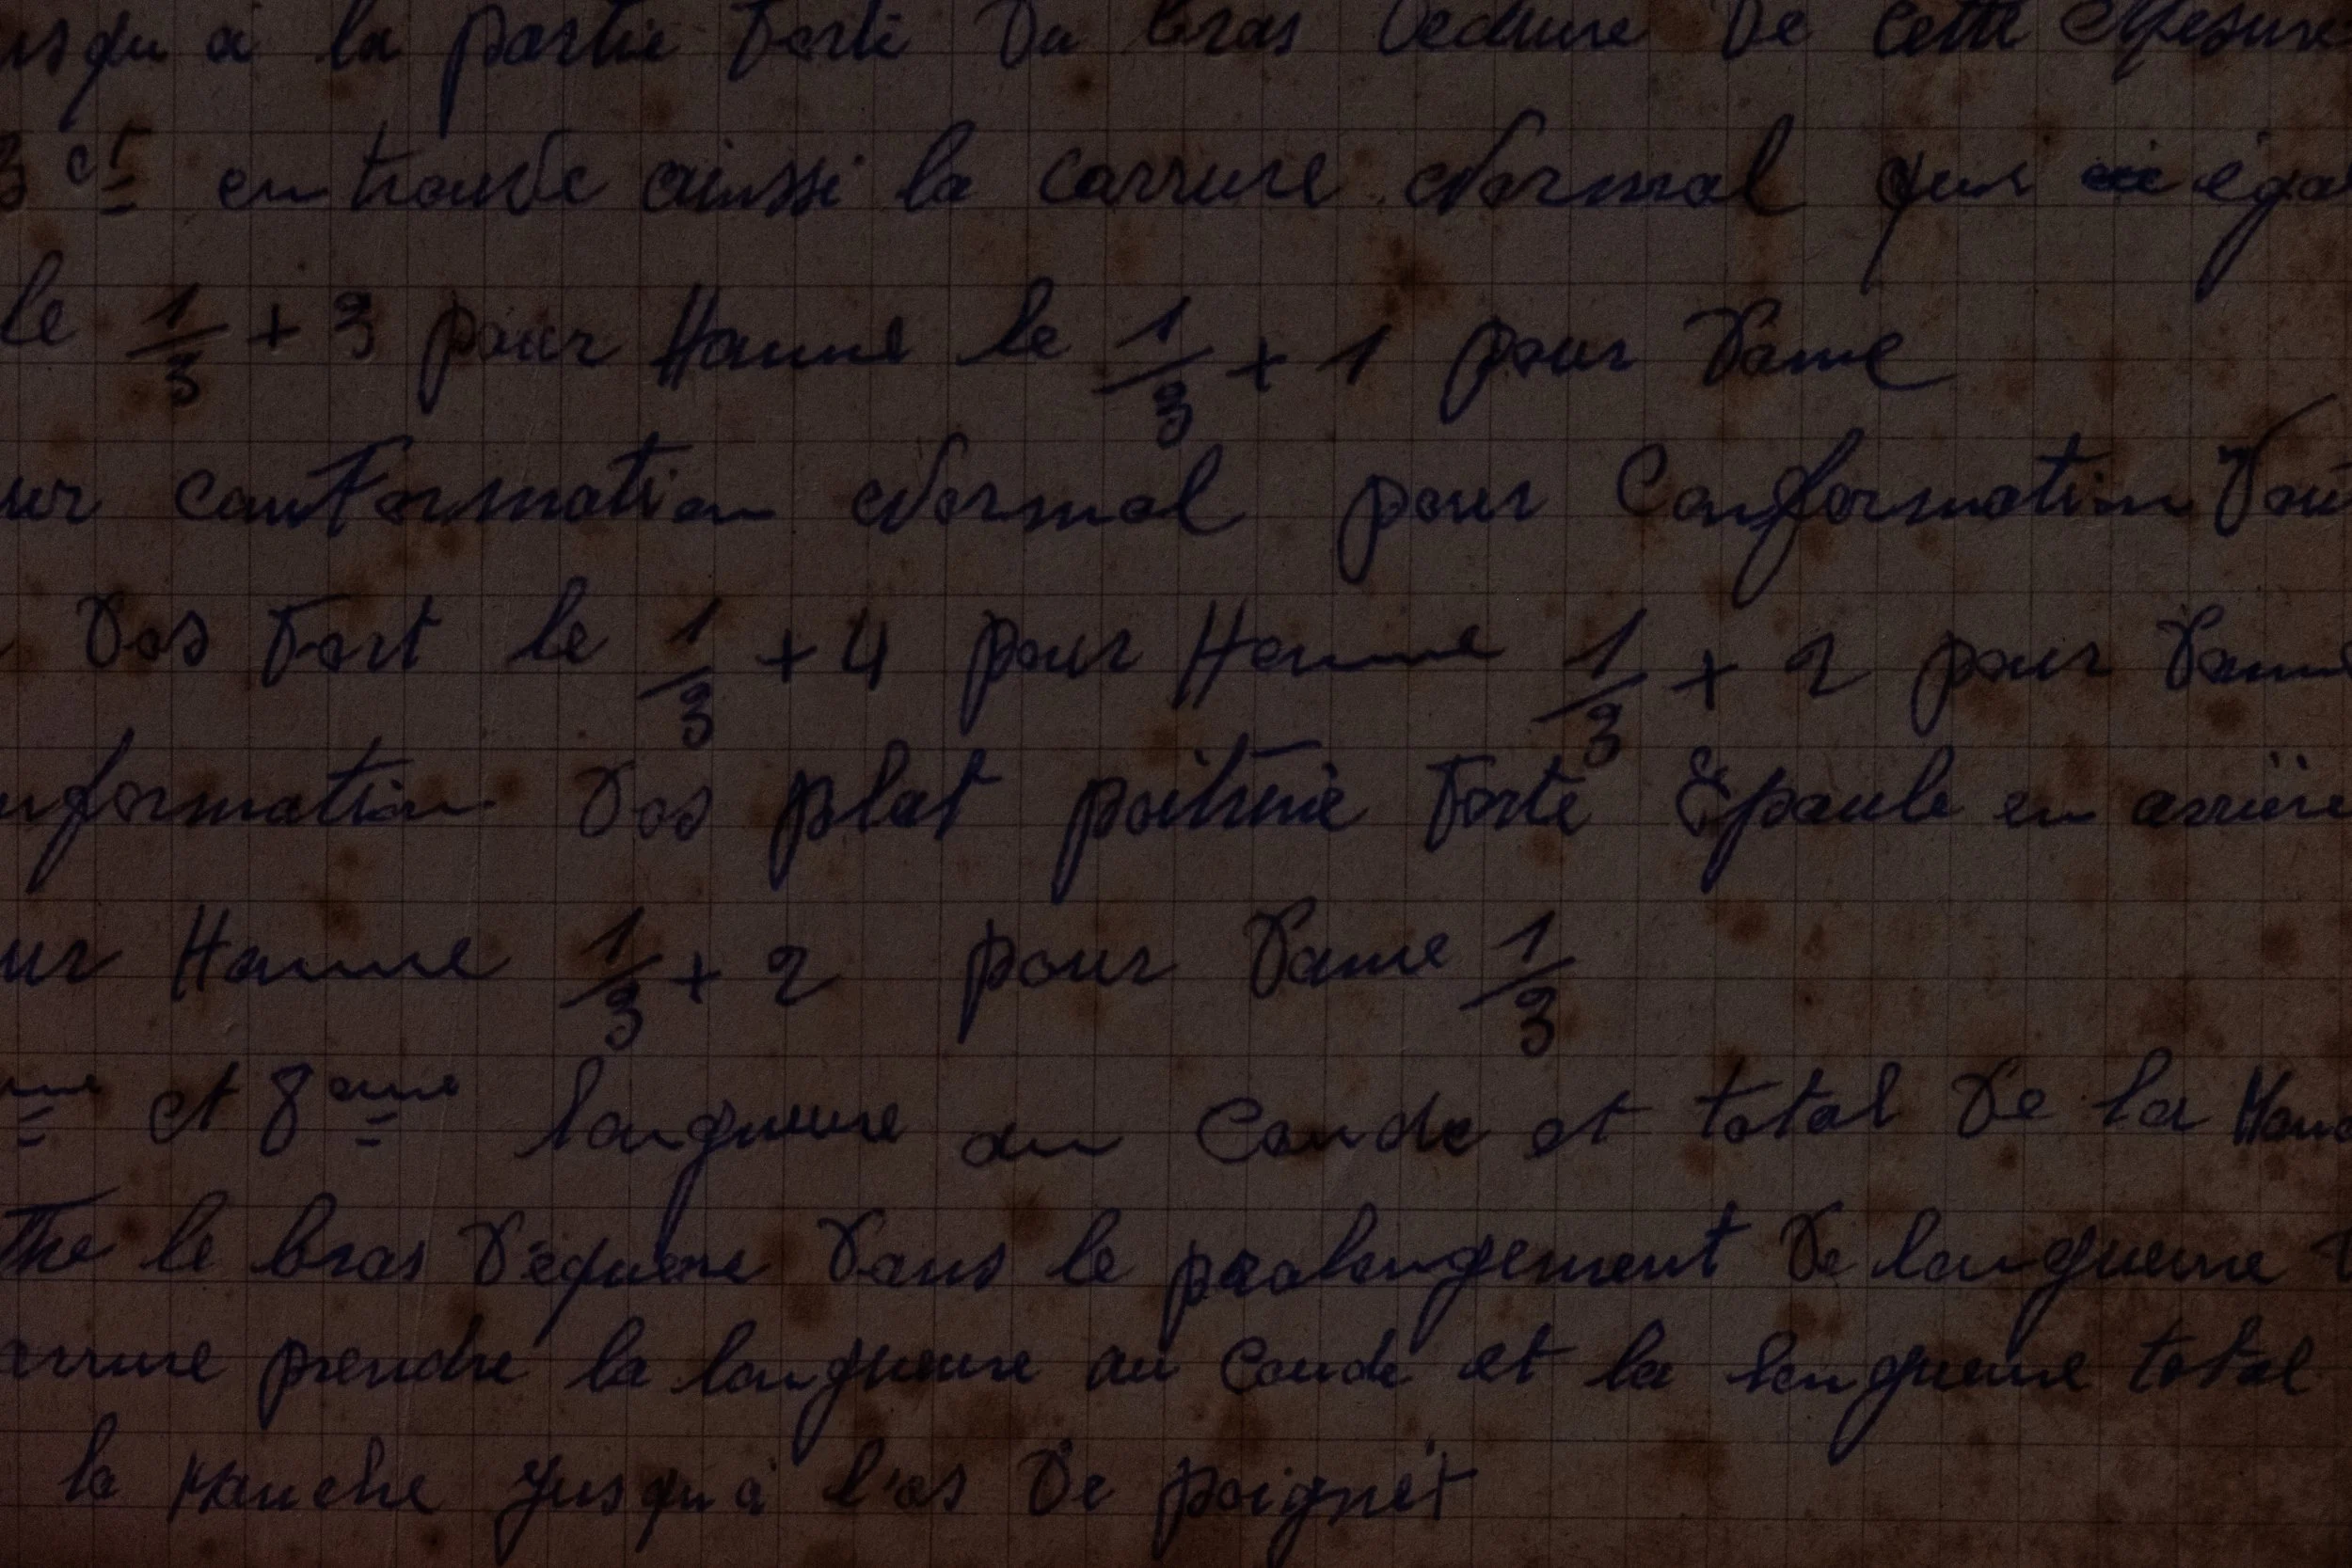 usqu a la partie Forte Du bras Deduire De cette Mesure
3 ct en trouve ainssi la carrure Normal qui égal
le 1/3 + 3 pour Homme le 1/3 + 1 pour Dame
ur conformation Normal pour Conformation Vou
Dos Fort le 1/3 + 4 pour Homme 1/3 + 2 pour Dame
nformation Dos plat poitrine Forte Epaule en arriere
ur Homme 1/3 + 2 pour Dame 1/3
eme et 8eme longueure au Coude et total De la Man
ttre le bras D'equere Dans le prolongement De longueure
arrure prendre la longueure au Coude et la longueure total
la Manche jusqu a l'os De poignet